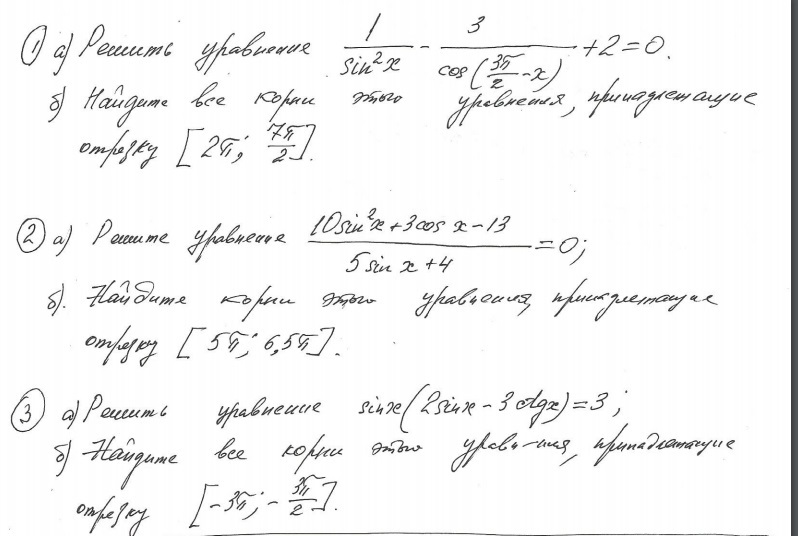 ① а) Решить уравнение 1/sin²x - 3/cos(3π/2 - x) + 2 = 0.
б) Найдите все корни этого уравнения, принадлежащие
отрезку [2π; 7π/2].
② а) Решите уравнение (10sin²x + 3cos x - 13)/(5 sin x + 4) = 0;
б). Найдите корни этого уравнения, принадлежащие
отрезку [5π; 6,5π].
③ а) Решить уравнение sinx(2sinx - 3ctgx) = 3;
б) Найдите все корни этого уравн-ния, принадлежащие
отрезку [-3π; -3π/2].